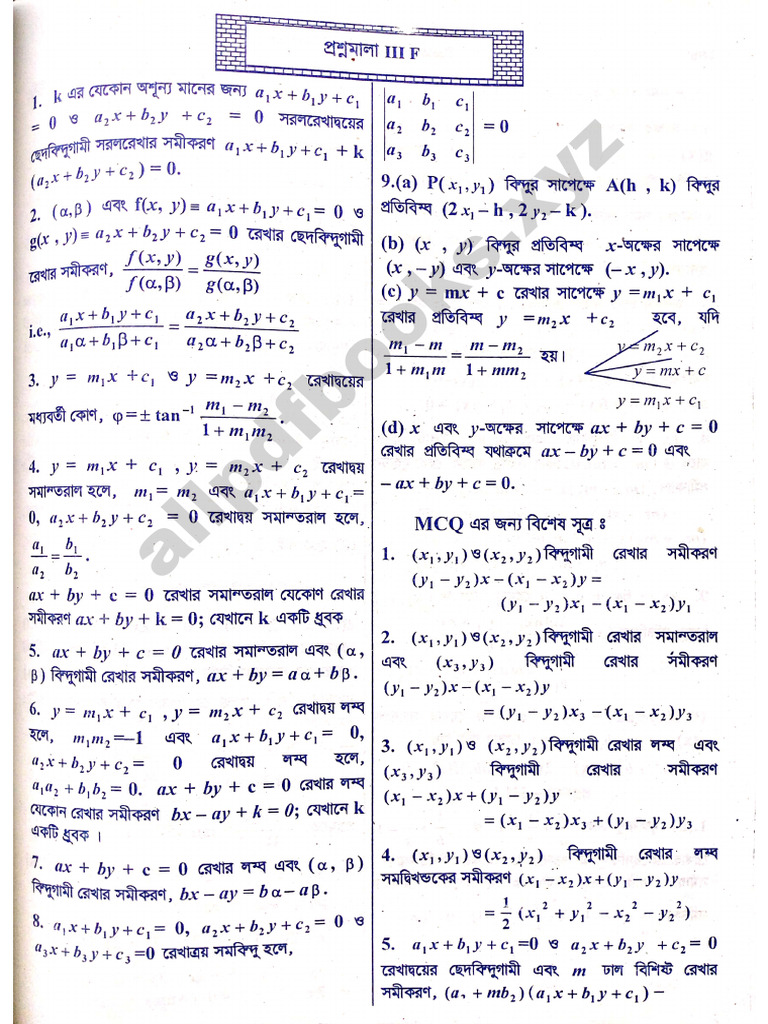 প্রশ্নমালা III F
1. k এর যেকোন অশূন্য মানের জন্য a₁x + b₁y + c₁
= 0 ও a₂x + b₂y + c₂ = 0 সরলরেখাদ্বয়ের
ছেদবিন্দুগামী সরলরেখার সমীকরণ a₁x + b₁y + c₁ + k
(a₂x + b₂y + c₂) = 0.
2. (α,β) এবং f(x, y) ≡ a₁x + b₁y + c₁ = 0 ও
g(x , y) ≡ a₂x + b₂y + c₂ = 0 রেখার ছেদবিন্দুগামী
রেখার সমীকরণ, f(x, y)/f(α,β) = g(x, y)/g(α,β)
i.e., (a₁x + b₁y + c₁)/(a₁α + b₁β + c₁) = (a₂x + b₂y + c₂)/(a₂α + b₂β + c₂)
3. y = m₁x + c₁ ও y = m₂x + c₂ রেখাদ্বয়ের
মধ্যবর্তী কোণ, φ = ± tan⁻¹ (m₁ − m₂)/(1 + m₁m₂) .
4. y = m₁x + c₁ , y = m₂x + c₂ রেখাদ্বয়
সমান্তরাল হলে, m₁ = m₂ এবং a₁x + b₁y + c₁ =
0, a₂x + b₂y + c₂ = 0 রেখাদ্বয় সমান্তরাল হলে,
a₁/a₂ = b₁/b₂ .
ax + by + c = 0 রেখার সমান্তরাল যেকোণ রেখার
সমীকরণ ax + by + k = 0; যেখানে k একটি ধ্রুবক
5. ax + by + c = 0 রেখার সমান্তরাল এবং (α,
β) বিন্দুগামী রেখার সমীকরণ, ax + by = aα + bβ.
6. y = m₁x + c₁ , y = m₂x + c₂ রেখাদ্বয় লম্ব
হলে, m₁m₂ = −1 এবং a₁x + b₁y + c₁ = 0,
a₂x + b₂y + c₂ = 0 রেখাদ্বয় লম্ব হলে,
a₁a₂ + b₁b₂ = 0. ax + by + c = 0 রেখার লম্ব
যেকোন রেখার সমীকরণ bx − ay + k = 0; যেখানে k
একটি ধ্রুবক ।
7. ax + by + c = 0 রেখার লম্ব এবং (α, β)
বিন্দুগামী রেখার সমীকরণ, bx − ay = bα − aβ.
8. a₁x + b₁y + c₁ = 0, a₂x + b₂y + c₂ = 0 ও
a₃x + b₃y + c₃ = 0 রেখাত্রয় সমবিন্দু হলে,
a₁ b₁ c₁
a₂ b₂ c₂ = 0
a₃ b₃ c₃
9.(a) P(x₁, y₁) বিন্দুর সাপেক্ষে A(h , k) বিন্দুর
প্রতিবিম্ব (2x₁ − h , 2y₂ − k ).
(b) (x , y) বিন্দুর প্রতিবিম্ব x-অক্ষের সাপেক্ষে
(x , − y) এবং y-অক্ষের সাপেক্ষে (− x , y).
(c) y = mx + c রেখার সাপেক্ষে y = m₁x + c₁
রেখার প্রতিবিম্ব y = m₂x + c₂ হবে, যদি
(m₁ − m)/(1 + m₁m) = (m − m₂)/(1 + mm₂) হয়।
y = m₂x + c₂
y = mx + c
y = m₁x + c₁
(d) x এবং y-অক্ষের সাপেক্ষে ax + by + c = 0
রেখার প্রতিবিম্ব যথাক্রমে ax − by + c = 0 এবং
− ax + by + c = 0.
MCQ এর জন্য বিশেষ সূত্র ঃ
1. (x₁, y₁) ও (x₂, y₂) বিন্দুগামী রেখার সমীকরণ
(y₁ − y₂)x − (x₁ − x₂)y =
(y₁ − y₂)x₁ − (x₁ − x₂)y₁
2. (x₁, y₁) ও (x₂, y₂) বিন্দুগামী রেখার সমান্তরাল
এবং (x₃, y₃) বিন্দুগামী রেখার সমীকরণ
(y₁ − y₂)x − (x₁ − x₂)y
= (y₁ − y₂)x₃ − (x₁ − x₂)y₃
3. (x₁, y₁) ও (x₂, y₂) বিন্দুগামী রেখার লম্ব এবং
(x₃, y₃) বিন্দুগামী রেখার সমীকরণ
(x₁ − x₂)x + (y₁ − y₂)y
= (x₁ − x₂)x₃ + (y₁ − y₂)y₃
4. (x₁, y₁) ও (x₂, y₂) বিন্দুগামী রেখার লম্ব
সমদ্বিখন্ডকের সমীকরণ (x₁ − x₂)x + (y₁ − y₂)y
= 1/2 (x₁² + y₁² − x₂² − y₂²)
5. a₁x + b₁y + c₁ = 0 ও a₂x + b₂y + c₂ = 0
রেখাদ্বয়ের ছেদবিন্দুগামী এবং m ঢাল বিশিষ্ট রেখার
সমীকরণ, (a₂ + mb₂) (a₁x + b₁y + c₁) −
allpdfbooks.xyz